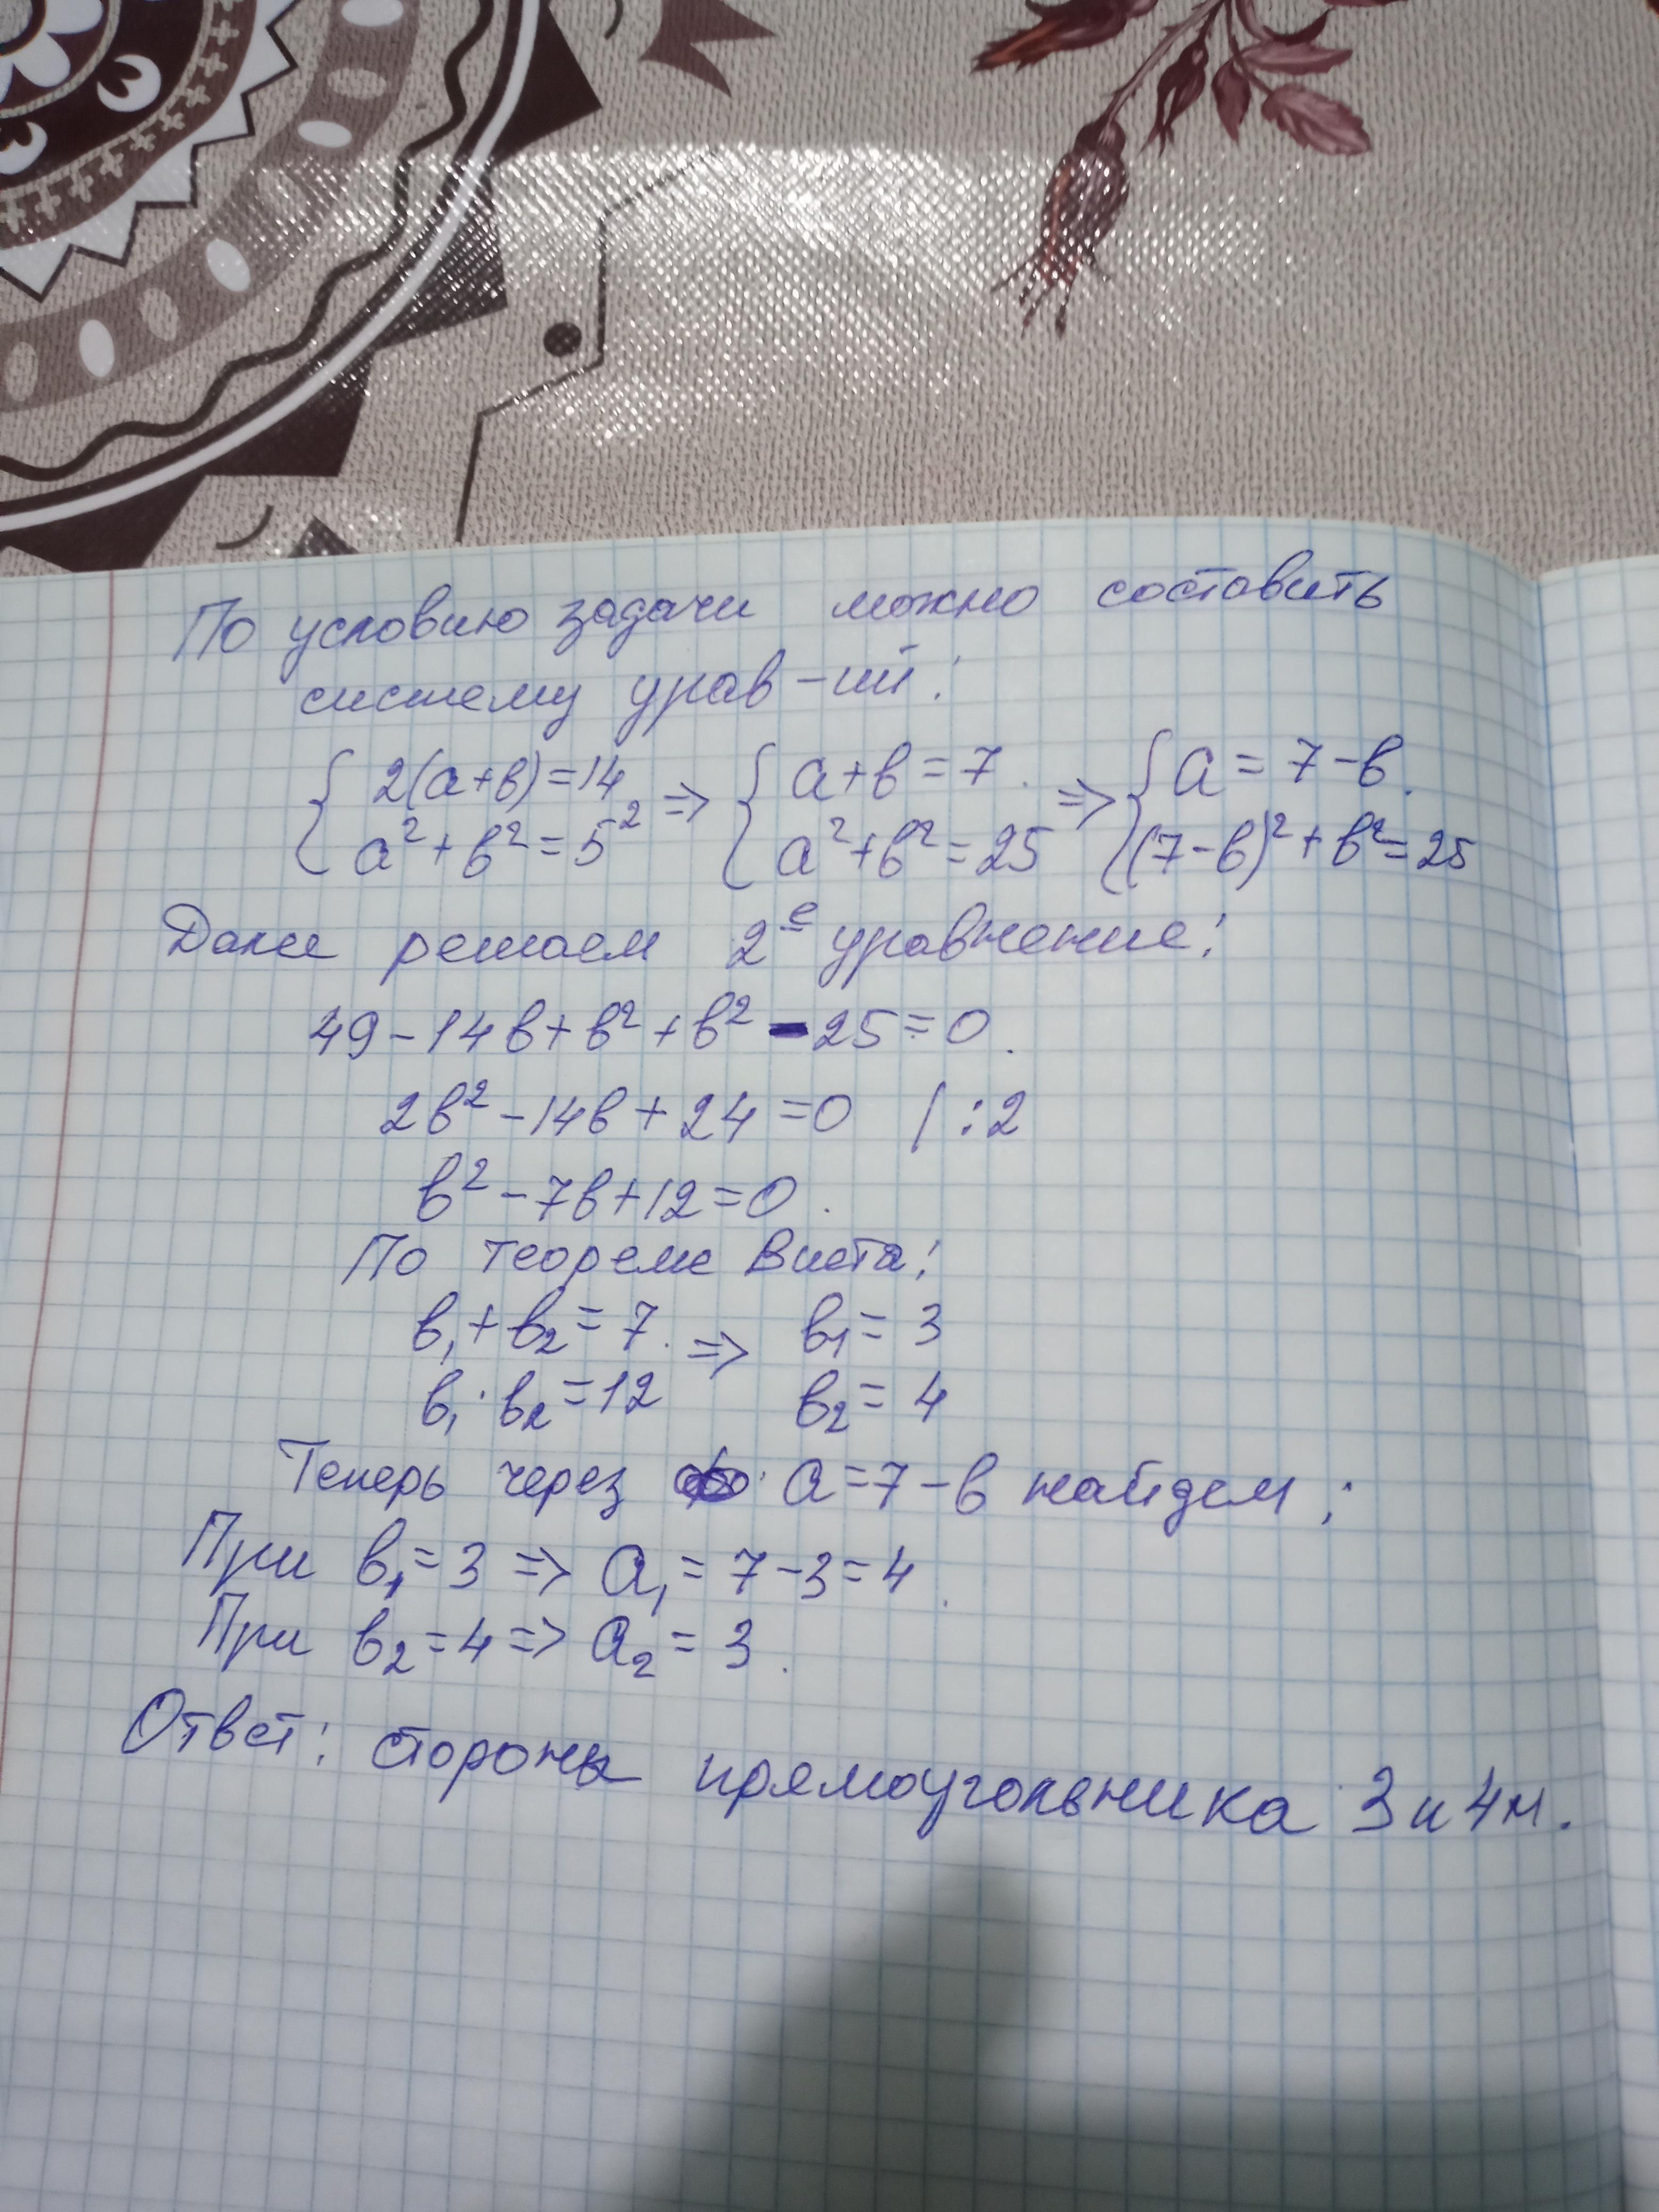 По условию задачи можно составить
систему урав-ий:
{ 2(а+в)=14 => { а+в=7. => { а=7-в.
{ а²+в²=5² { а²+в²=25 { (7-в)²+в²=25
Далее решаем 2е уравнение:
49-14в+в²+в²-25=0.
2в²-14в+24=0 /:2
в²-7в+12=0.
По теореме Виета:
в₁+в₂=7. => в₁=3
в₁·в₂=12 в₂=4
Теперь через а=7-в найдем:
При в₁=3 => а₁=7-3=4.
При в₂=4 => а₂=3.
Ответ: стороны прямоугольника 3 и 4 м.